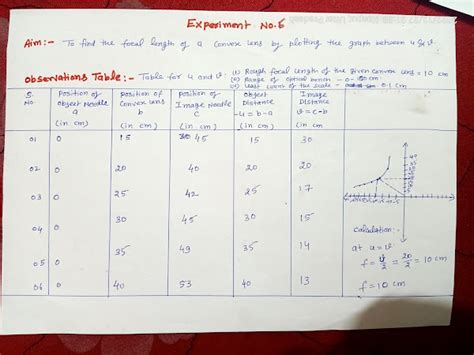 Experiment No. 5
Aim:- To find the focal length of a Convex lens by plotting the graph between u & v.
Observations Table:- Table for u and v: (i) Rough focal length of the given convex lens = 10 cm
(ii) Range of optical bench - 0 - 150 cm
(iii) Least count of the scale - 0.1 cm
S. No. | Position of Object Needle a (in cm) | Position of Convex lens b (in cm) | Position of Image Needle c (in cm) | Object Distance -u = b-a (in cm) | Image Distance v = c-b (in cm)
01 | 0 | 15 | 45 | 15 | 30
02 | 0 | 20 | 40 | 20 | 20
03 | 0 | 25 | 42 | 25 | 17
04 | 0 | 30 | 45 | 30 | 15
05 | 0 | 35 | 49 | 35 | 14
06 | 0 | 40 | 53 | 40 | 13
Calculation:-
at u = v.
f = v/2 = 20/2 = 10 cm
f = 10 cm